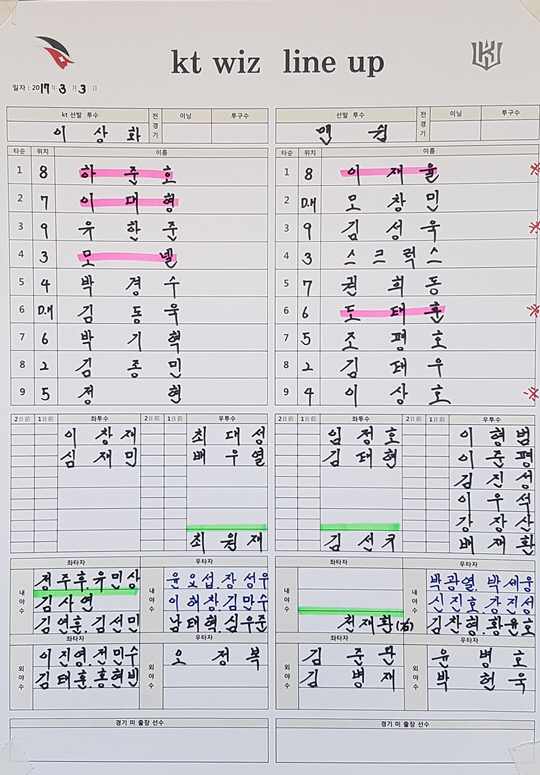 kt wiz line up
일자 : 2017년 3월 3일
kt 선발 투수 전경기 이닝 투구수
이상화
타순 위치 이름
1 8 하준호
2 7 이대형
3 9 유한준
4 3 모넬
5 4 박경수
6 D.H 김동욱
7 6 박기혁
8 2 김종민
9 5 정현
2일前 1일前 좌투수 2일前 1일前 우투수
이창재 최대성
심재민 배우열
최원재
좌타자 우타자
내야수
정주후.유민상 윤요섭.장선우
김사연 이해창.김만수
김연훈.김선민 남태혁.심우준
좌타자 우타자
외야수
이진영.전민수 오정복
김태훈.홍현빈
경기 미 출장 선수
선발 투수 전경기 이닝 투구수
맨쉽
타순 위치 이름
1 8 이재율
2 D.H 모창민
3 9 김성욱
4 3 스크럭스
5 7 권희동
6 6 도태훈
7 5 조평호
8 2 김태우
9 4 이상호
2일前 1일前 좌투수 2일前 1일前 우투수
임정호 이형범
김태현 이준평
김진성
이우석
강장산
김선규 배재환
좌타자 우타자
내야수
박광열.박세웅
신진호.강진성
천재환(76) 김찬형 황윤호
좌타자 우타자
외야수
김준완 윤병호
김병재 박헌욱
경기 미 출장 선수